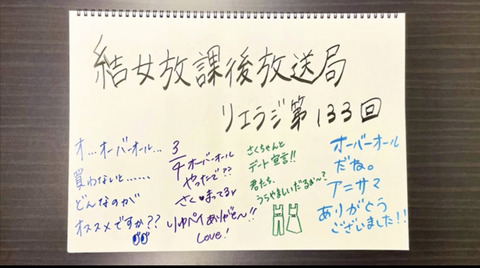 結女放課後放送局
リエラジ第133回
オ...オーバーオール...
買わないと......
どんなのが
オススメですか??
3/4オーバーオール
やったで??
さく♥まってるよ
りゆペイありがと〜!!
Love!
さくちゃんと
デート宣言!!
君たち、
うらやましいだろぉ〜?
オーバーオール
だね。
アニサマ
ありがとう
ございました!!